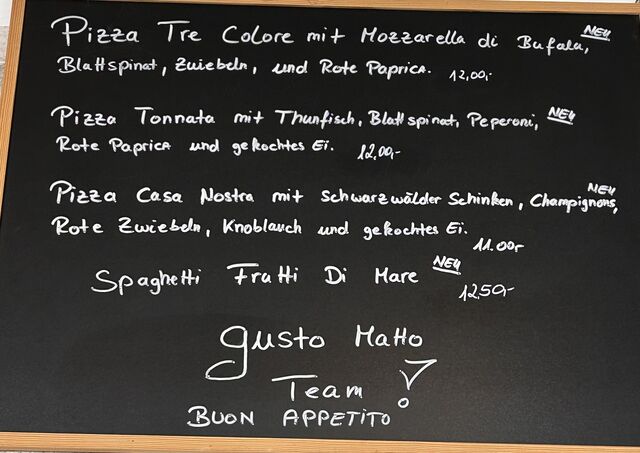 Pizza Tre Colore mit Mozzarella di Bufala, NEU
Blattspinat, Zwiebeln, und Rote Paprica. 12,00,-
Pizza Tonnata mit Thunfisch, Blattspinat, Peperoni, NEU
Rote Paprica und gekochtes Ei. 12,00,-
Pizza Casa Nostra mit Schwarzwälder Schinken, Champignons, NEU
Rote Zwiebeln, Knoblauch und gekochtes Ei.
11.00,-
Spaghetti Frutti Di Mare NEU
12.50,-
Gusto Matto
Team
BUON APPETITO!